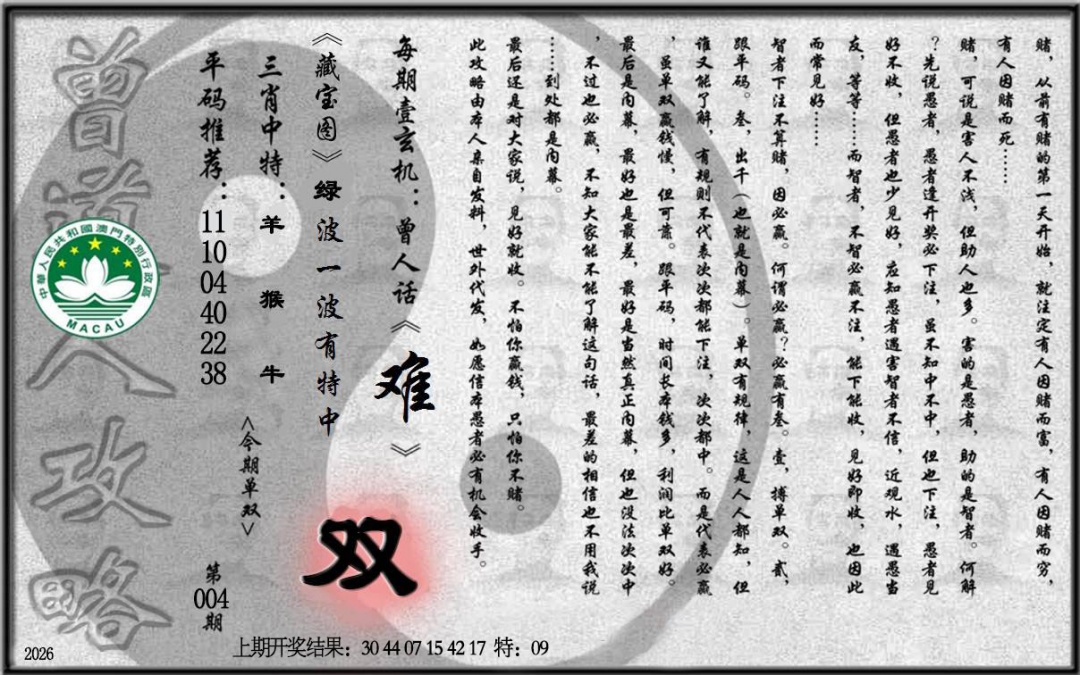 赌，从前有赌的第一天开始，就注定有人因赌而富，有人因赌而穷，
有人因赌而死……
赌，可说是害人不浅，但助人也多。害的是愚者，助的是智者。何解
？先说愚者，愚者逢开奖必下注，虽不知中不中，但也下注，愚者见
好不收，但愚者也少见好，应知愚者遇害智者不信，近观水，遇愚当
友，等等……而智者，不智必赢不注，能下能收，见好即收，也因此
而常见好……
智者下注不算赌，因必赢。何谓必赢？必赢有叁。壹，搏单双。贰，
跟平码。叁，出千（也就是内幕）。单双有规律，这是人人都知，但
谁又能了解，有规则不代表次次都能下注，次次都中。而是代表必赢
，虽单双赢钱慢，但可靠。跟平码，时间长本钱多，利润比单双好。
最后是内幕，最好也是最差，最好是当然真正内幕，但也没法次次中
，不过也必赢，不知大家能不能了解这句话，最差的相信也不用我说
……到处都是内幕。
最后还是对大家说，见好就收。不怕你赢钱，只怕你不赌。
此攻略由本人亲自发料，世外代发，如愿信本愚者必有机会收手。
每期壹玄机：曾人话《难》
《藏宝图》绿波一波有特中
双
三肖中特：羊 猴 牛
<今期单双>
平码推荐：11 10 04 40 22 38
第004期
曾道人攻略
中華人民共和國澳門特別行政區
MACAU
2026
上期开奖结果：30 44 07 15 42 17 特：09